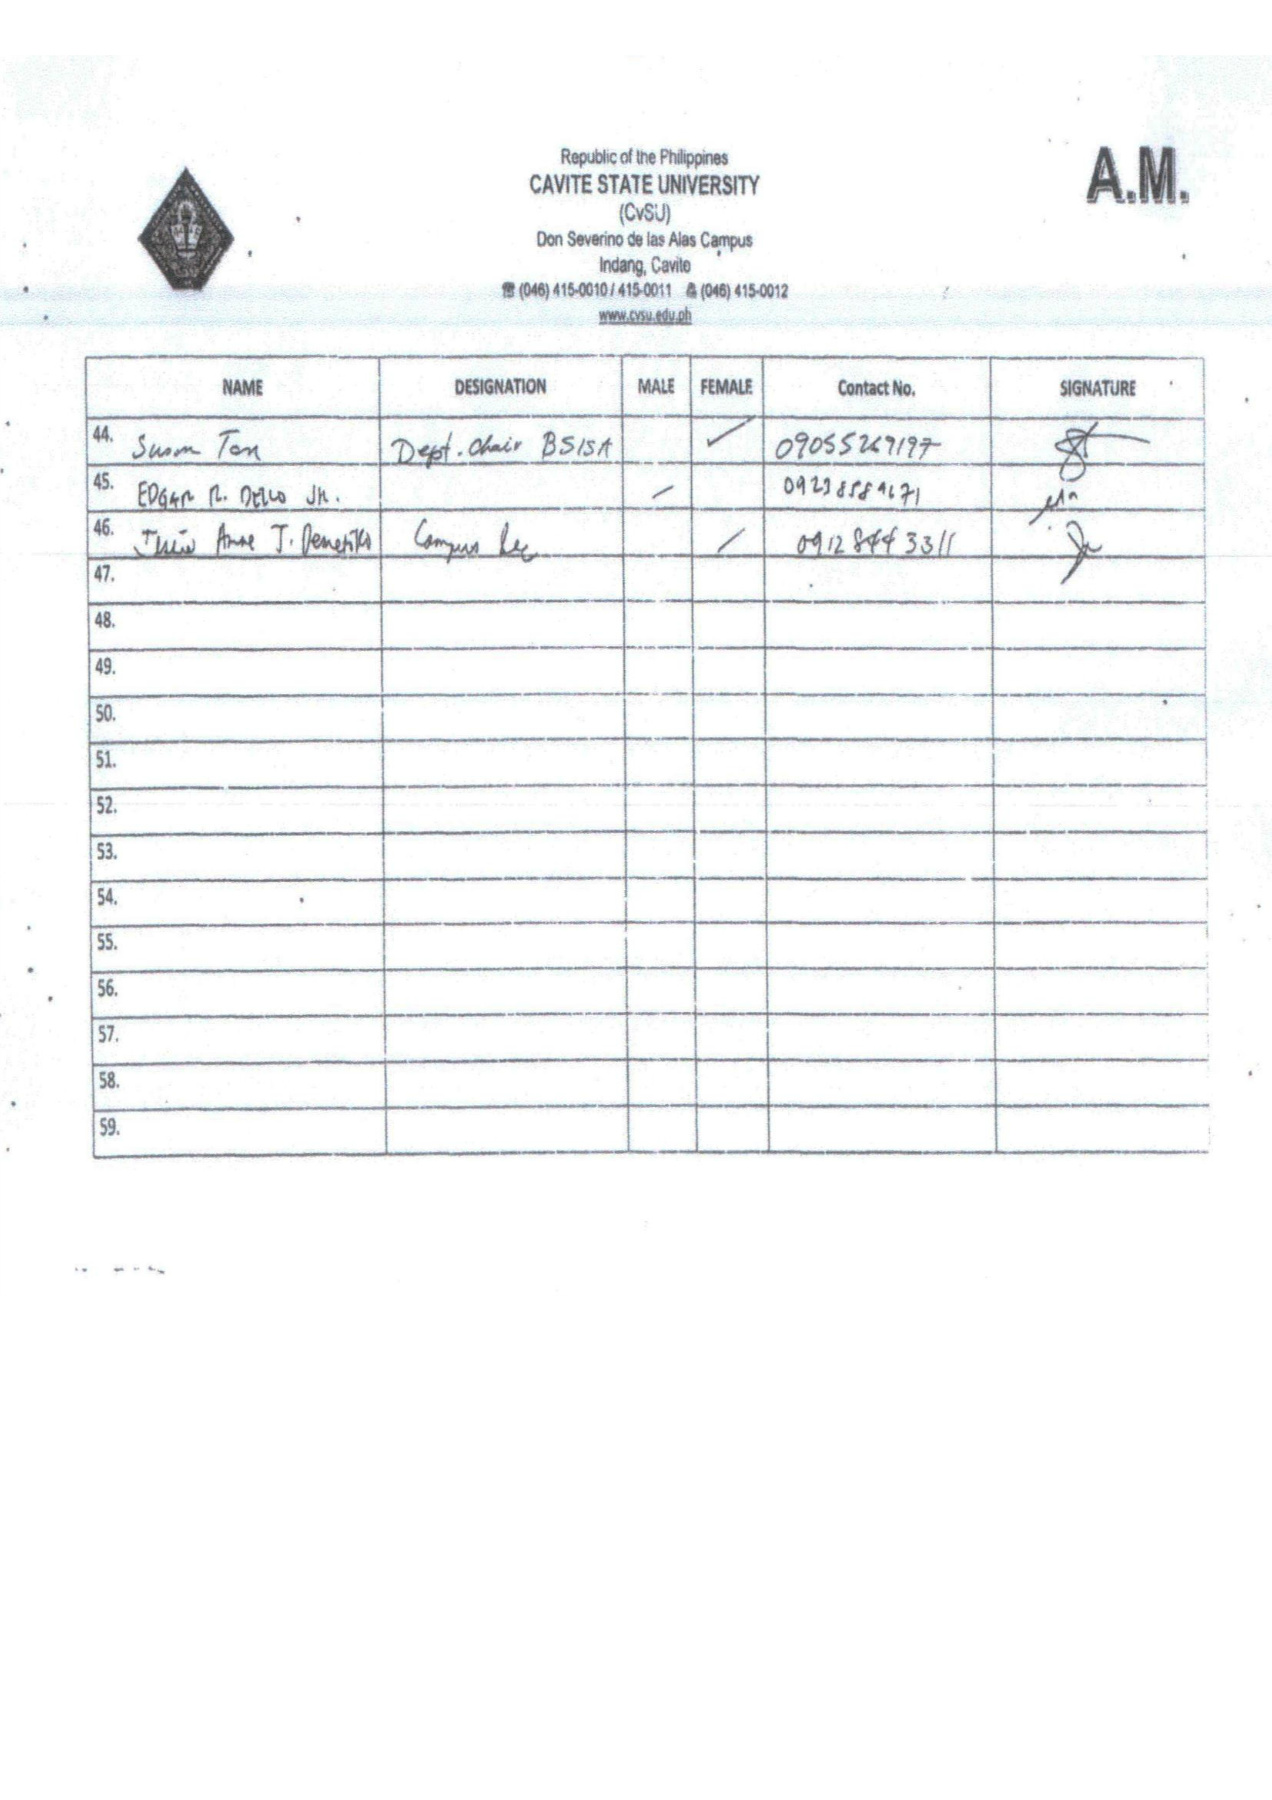 Republic of the Philippines
CAVITE STATE UNIVERSITY
(CvSU)
Don Severino de las Alas Campus
Indang, Cavite
☎ (046) 415-0010 / 415-0011 (046) 415-0012
www.cvsu.edu.ph
A.M.
NAME DESIGNATION MALE FEMALE Contact No. SIGNATURE
44. Susan Tan Dept. Chair BSISA ✓ 09055269197
45. EDGAR R. DELLO JR. /
46. Anne J. Campus / 09128443311
47.
48.
49.
50.
51.
52.
53.
54.
55.
56.
57.
58.
59.